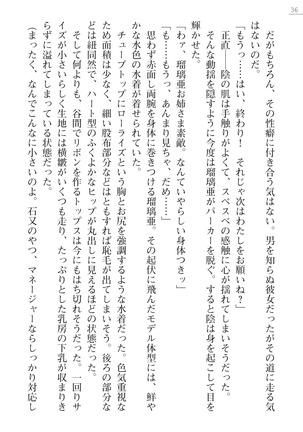 36
だがもちろん、その性癖に付き合う気はない。男を知らぬ彼女だったがその道に走る気
はないのだ。
「もうっ……はい、終わり! それじゃ次はわたしをお願いね?」
正直――陰の肌は手触りがよくて、スベスベの感触に心が揺れてしまいそうだった。
そんな動揺を隠すように今度は瑠璃亜がパーカーを脱ぐ。すると陰は身を起こして目を
輝かせた。
「わァ、瑠璃亜お姉さま素敵。なんていやらしい身体つきッ」
「もう……もうっ、あんまり見ちゃ、だめ……」
思わず赤面し両腕を身体に巻きつける瑠璃亜。その起伏に飛んだモデル体型には、鮮や
かな水色の水着が着せられていた。
チューブトップにローライズという胸とお尻を強調するような水着だった。色気重視な
ため面積は少なく、細い股布部分などはともすれば恥毛が出てしまいそう。後ろの部分な
どは紐同然で、ハート型のふくよかなヒップが丸出しに見えるほどの状態だった。
そして何よりも、谷間でリボンを作るトップスは今にもはち切れそうだった。一回りサ
イズが小さいらしく生地には横皺がいくつも走り、たっぷりとした乳房の下乳が収まりき
らずに溢れてしまっている状態だった。
(まったく、なんでこんなに小さいのよ。石又のやつ、マネージャーならしっかり対応し